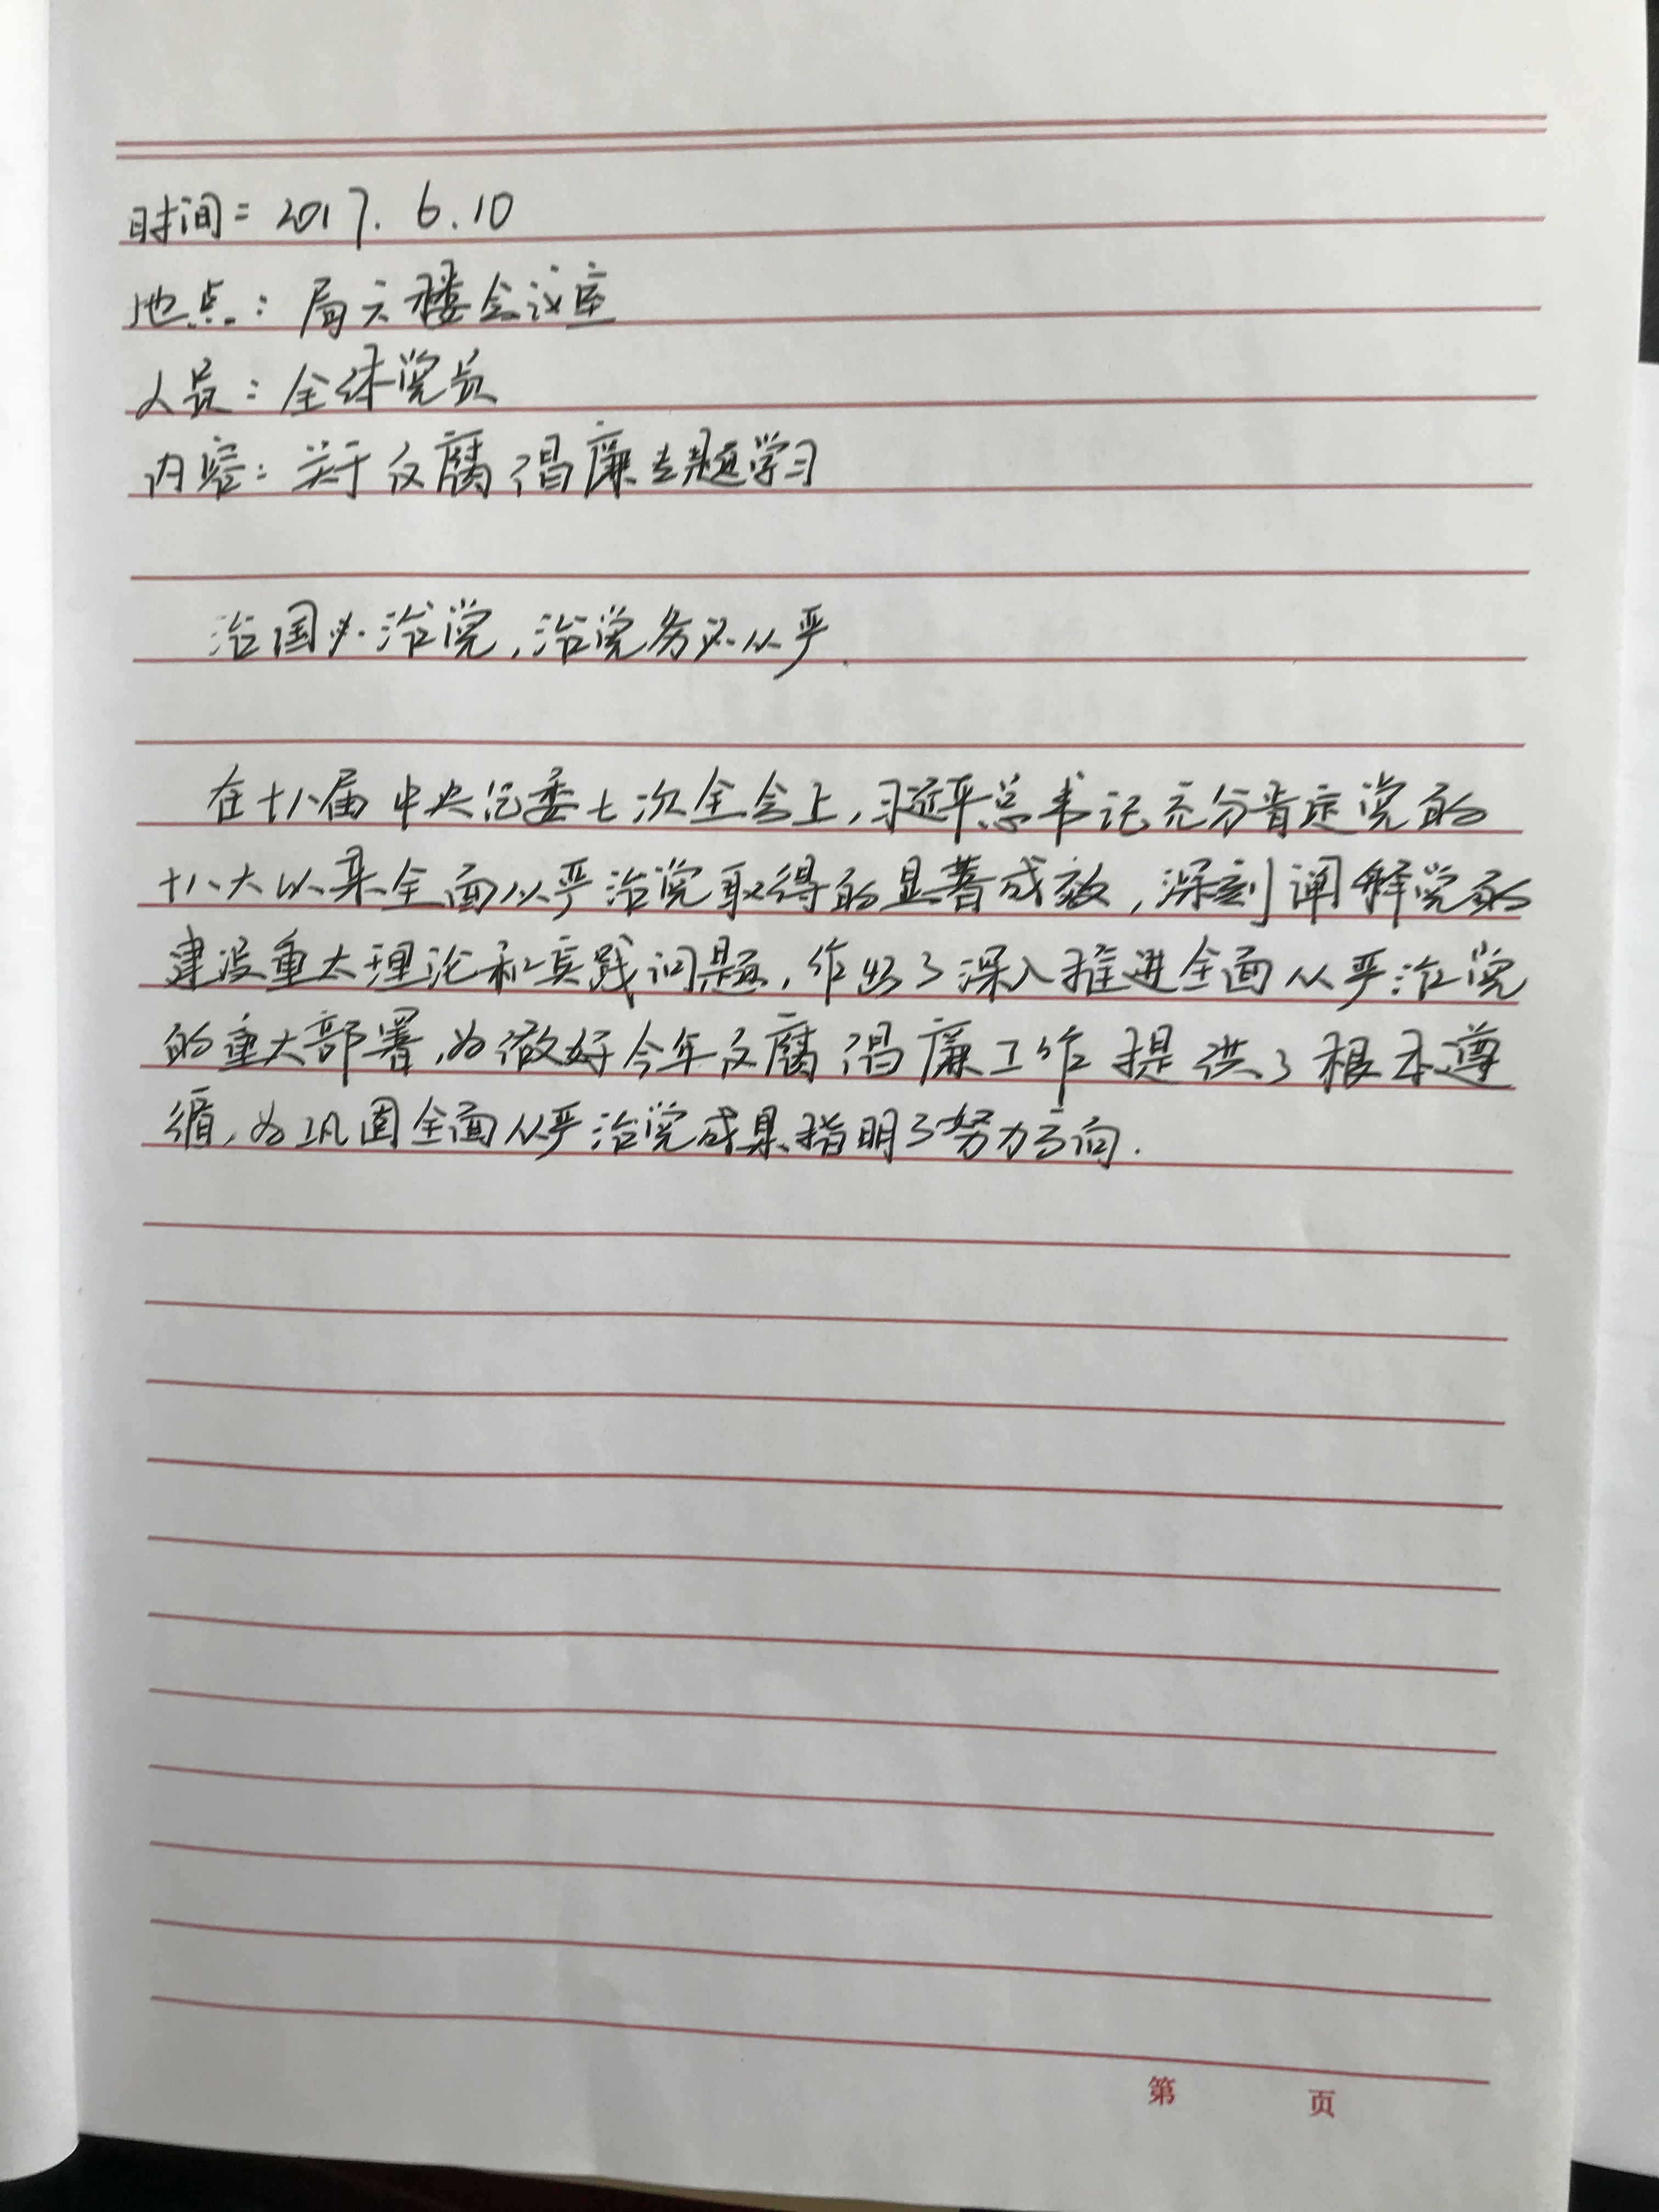 时间：2017.6.10
地点：局六楼会议室
人员：全体党员
内容：关于反腐倡廉专题学习
治国必治党，治党务必从严.
在十八届中央纪委七次全会上，习近平总书记充分肯定党的
十八大以来全面从严治党取得的显著成效，深刻阐释党的
建设重大理论和实践问题，作出了深入推进全面从严治党
的重大部署，为做好今年反腐倡廉工作提供了根本遵
循，为巩固全面从严治党成果指明了努力方向.
第 页